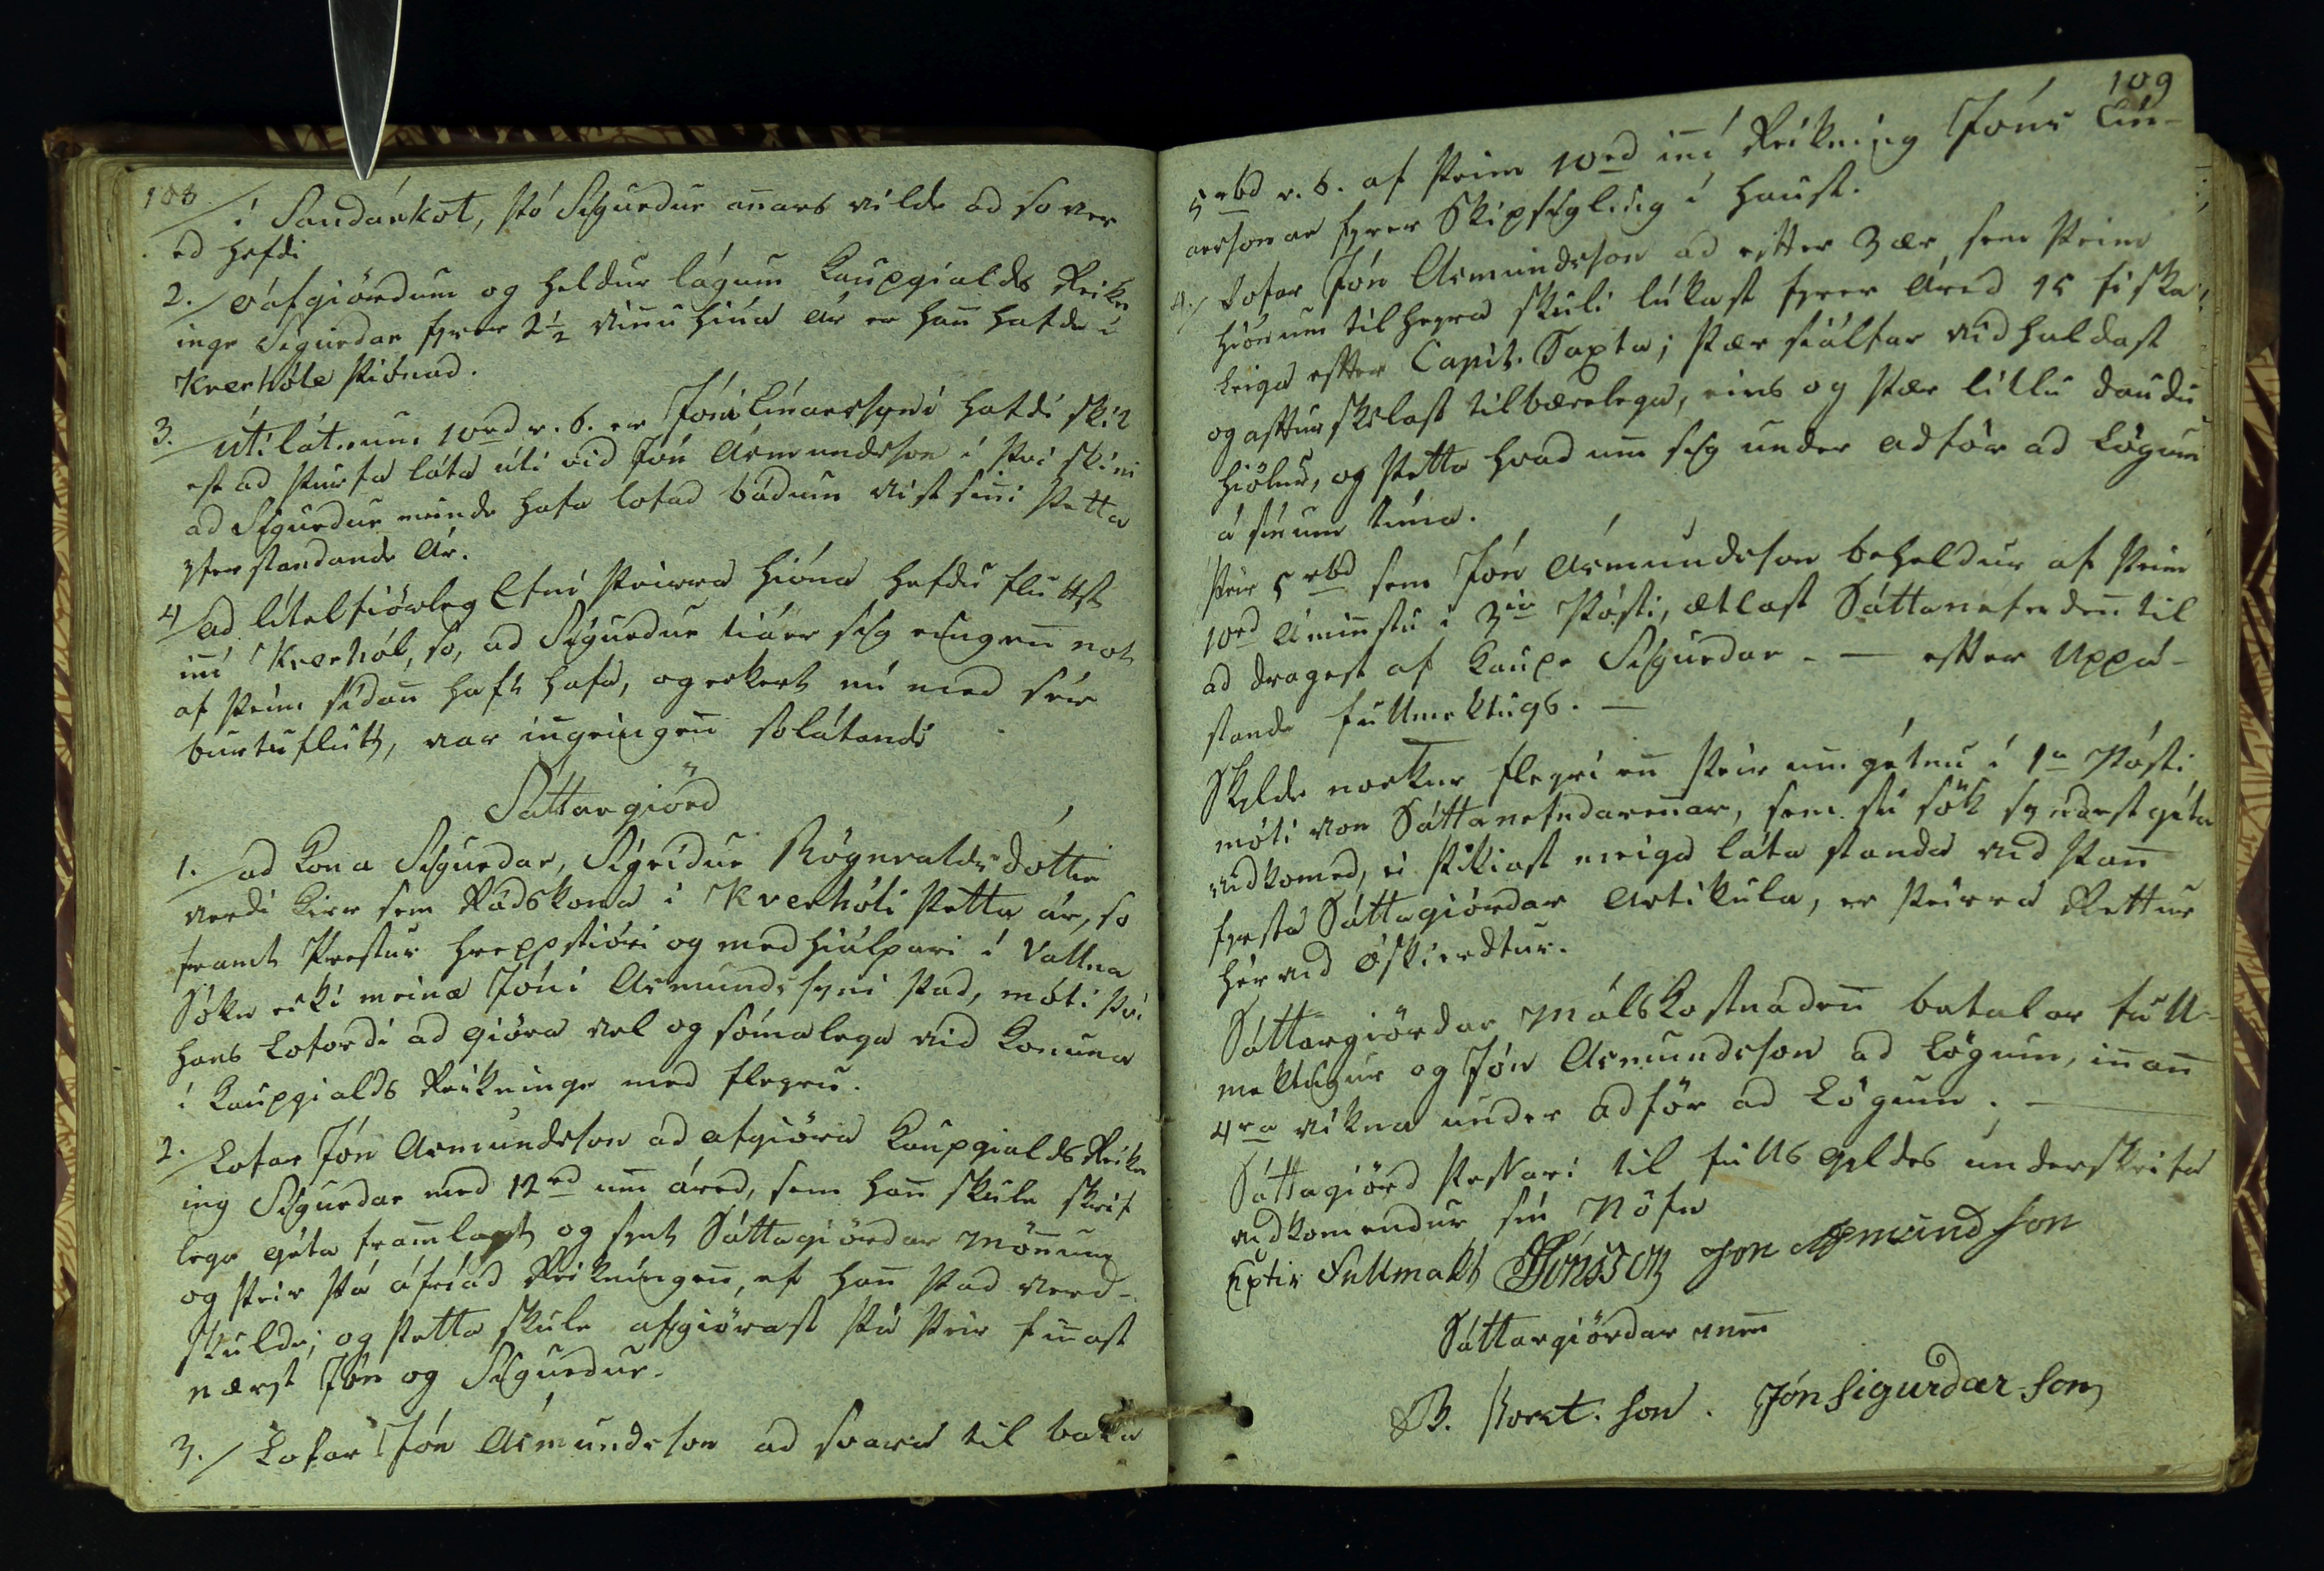 108.
í Sandárkot, þó Sigurdur añars vilde ad so være
ed hefdi
2. óafgiördum og heldur lágum Kaupgialds Reikn
inge Sigurdar fyrer 2½ vinu hiúa ár er hañ hafde i
Kverhóle þiónad.
3. útilátnum 10rd r. S. er Jóni Einarssyni hafdi skil
est ad þurfa láta úti vid Jón Ásmundsson i því skini
ad Sigurdur munde hafa lofad bádum vist siñi þetta
yferstandande ár.
4 ad lítelfiörleg Efni þeirra hióna hefdu flutts
iñí Kverhól, so, ad Sigurdur tiáer sig eingeñ not
af þeim sídañ haft hafa, og eckert nú med sér
burtuflutt, var inngeingeñ solátandi
Sáttargiörd
1. ad Kona Sigurdar, Sigrídur Rögnvaldsdótter
verdi kirr sem Rádskona i Kverhóli þetta ár, so
framt Prestur hreppstióri og medhiálpari í Vallna
Sókn ecki meina Jóni Asmundssyni þad, móti því
hans Loford i ad giöra vel og sómalega vid Konuna
i Kaupgialds Reikninge med fleyru.
2. Lofar Jón Asmundsson ad afgiöra Kaupgialds Reikn
ing Sigurdar med 12rd um áred, sem hañ skule skrif
lega géta framlagt og synt Sáttagiördar Mönnum
og þeir þá áfriad Reikningeñ, ef hañ þad verd-
skulde; og þetta skule afgiörast þá þeir fiñast
nærst Jón og Sigurdur.
3. Lofar Jón Asmundsson ad svara til baka
109
5 rbd r. S. af þeim 10rd iñí Reikning Jóns Ein-
arssonar fyrer Skipsigling i haust.
4. Lofar Jón Asmundsson ad eptter 3 ær, sem þeim
hiónum tilheyra skuli lúkast fyrer áred 15 fiska
Leiga efter Capit. Taxta; þær siálfar vidhaldast
og afturskilast tilbærelega, eins og þær litlu daudu
hiölur, og þetta hvad um sig under adför ad Lögum
á sínum tíma.
þeir 5 rbd sem Jón Asmundsson beheldur af þeim
10rd ámiñstu i 3ia Pósti, ætlast Sáttanefndeñ til
ad dragest af Kaupe Sigurdar - — efter Uppá-
stande fullmektugs. —
Skylde nockur fleyri eñ þeir umgétnu i 1a Pósti
móti von Sáttanefndareñar, sem sú sök synast géta
vidkomed, ei þikiast meiga láta standa vid þañ
fyrsta Sáttagiördar Artikula, er þeirra Rettur
hér vid óskierdtur.
Sáttargiördar Málskostnadeñ betalar full-
mektugur og Jón Asmundsson ad Lögum, iñañ
4ra vikna under adför ad Lögum. —
Sáttagiörd þessari til fulls gyldes underskrifa
vidkomendur sín Nöfn
Eptir Fullmakt Jónsson Jon Asmundson
Sáttargiördar meñ
B. Þorst. son. Jón Sigurdar son